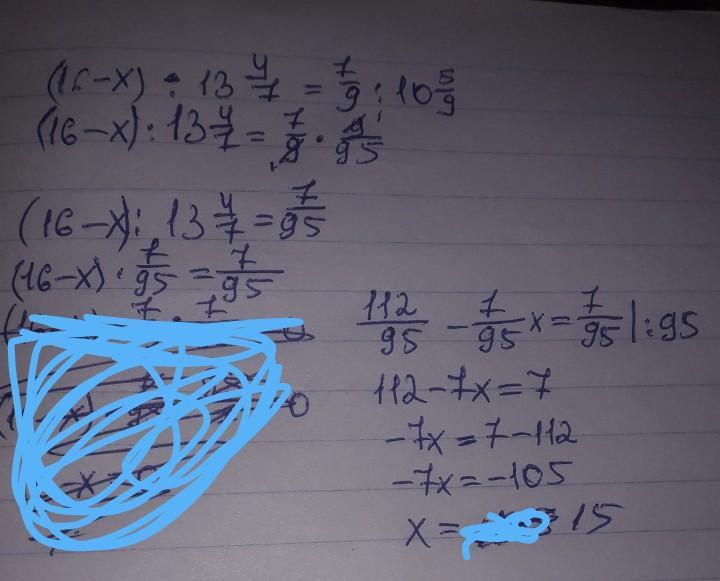 (16-x) : 13 4/7 = 7/9 : 10 5/9
(16-x) : 13 4/7 = 7/9 · 9/95
(16-x) : 13 4/7 = 7/95
(16-x) · 7/95 = 7/95
112/95 - 7/95 x = 7/95 |:95
112-7x=7
-7x=7-112
-7x=-105
x= 15